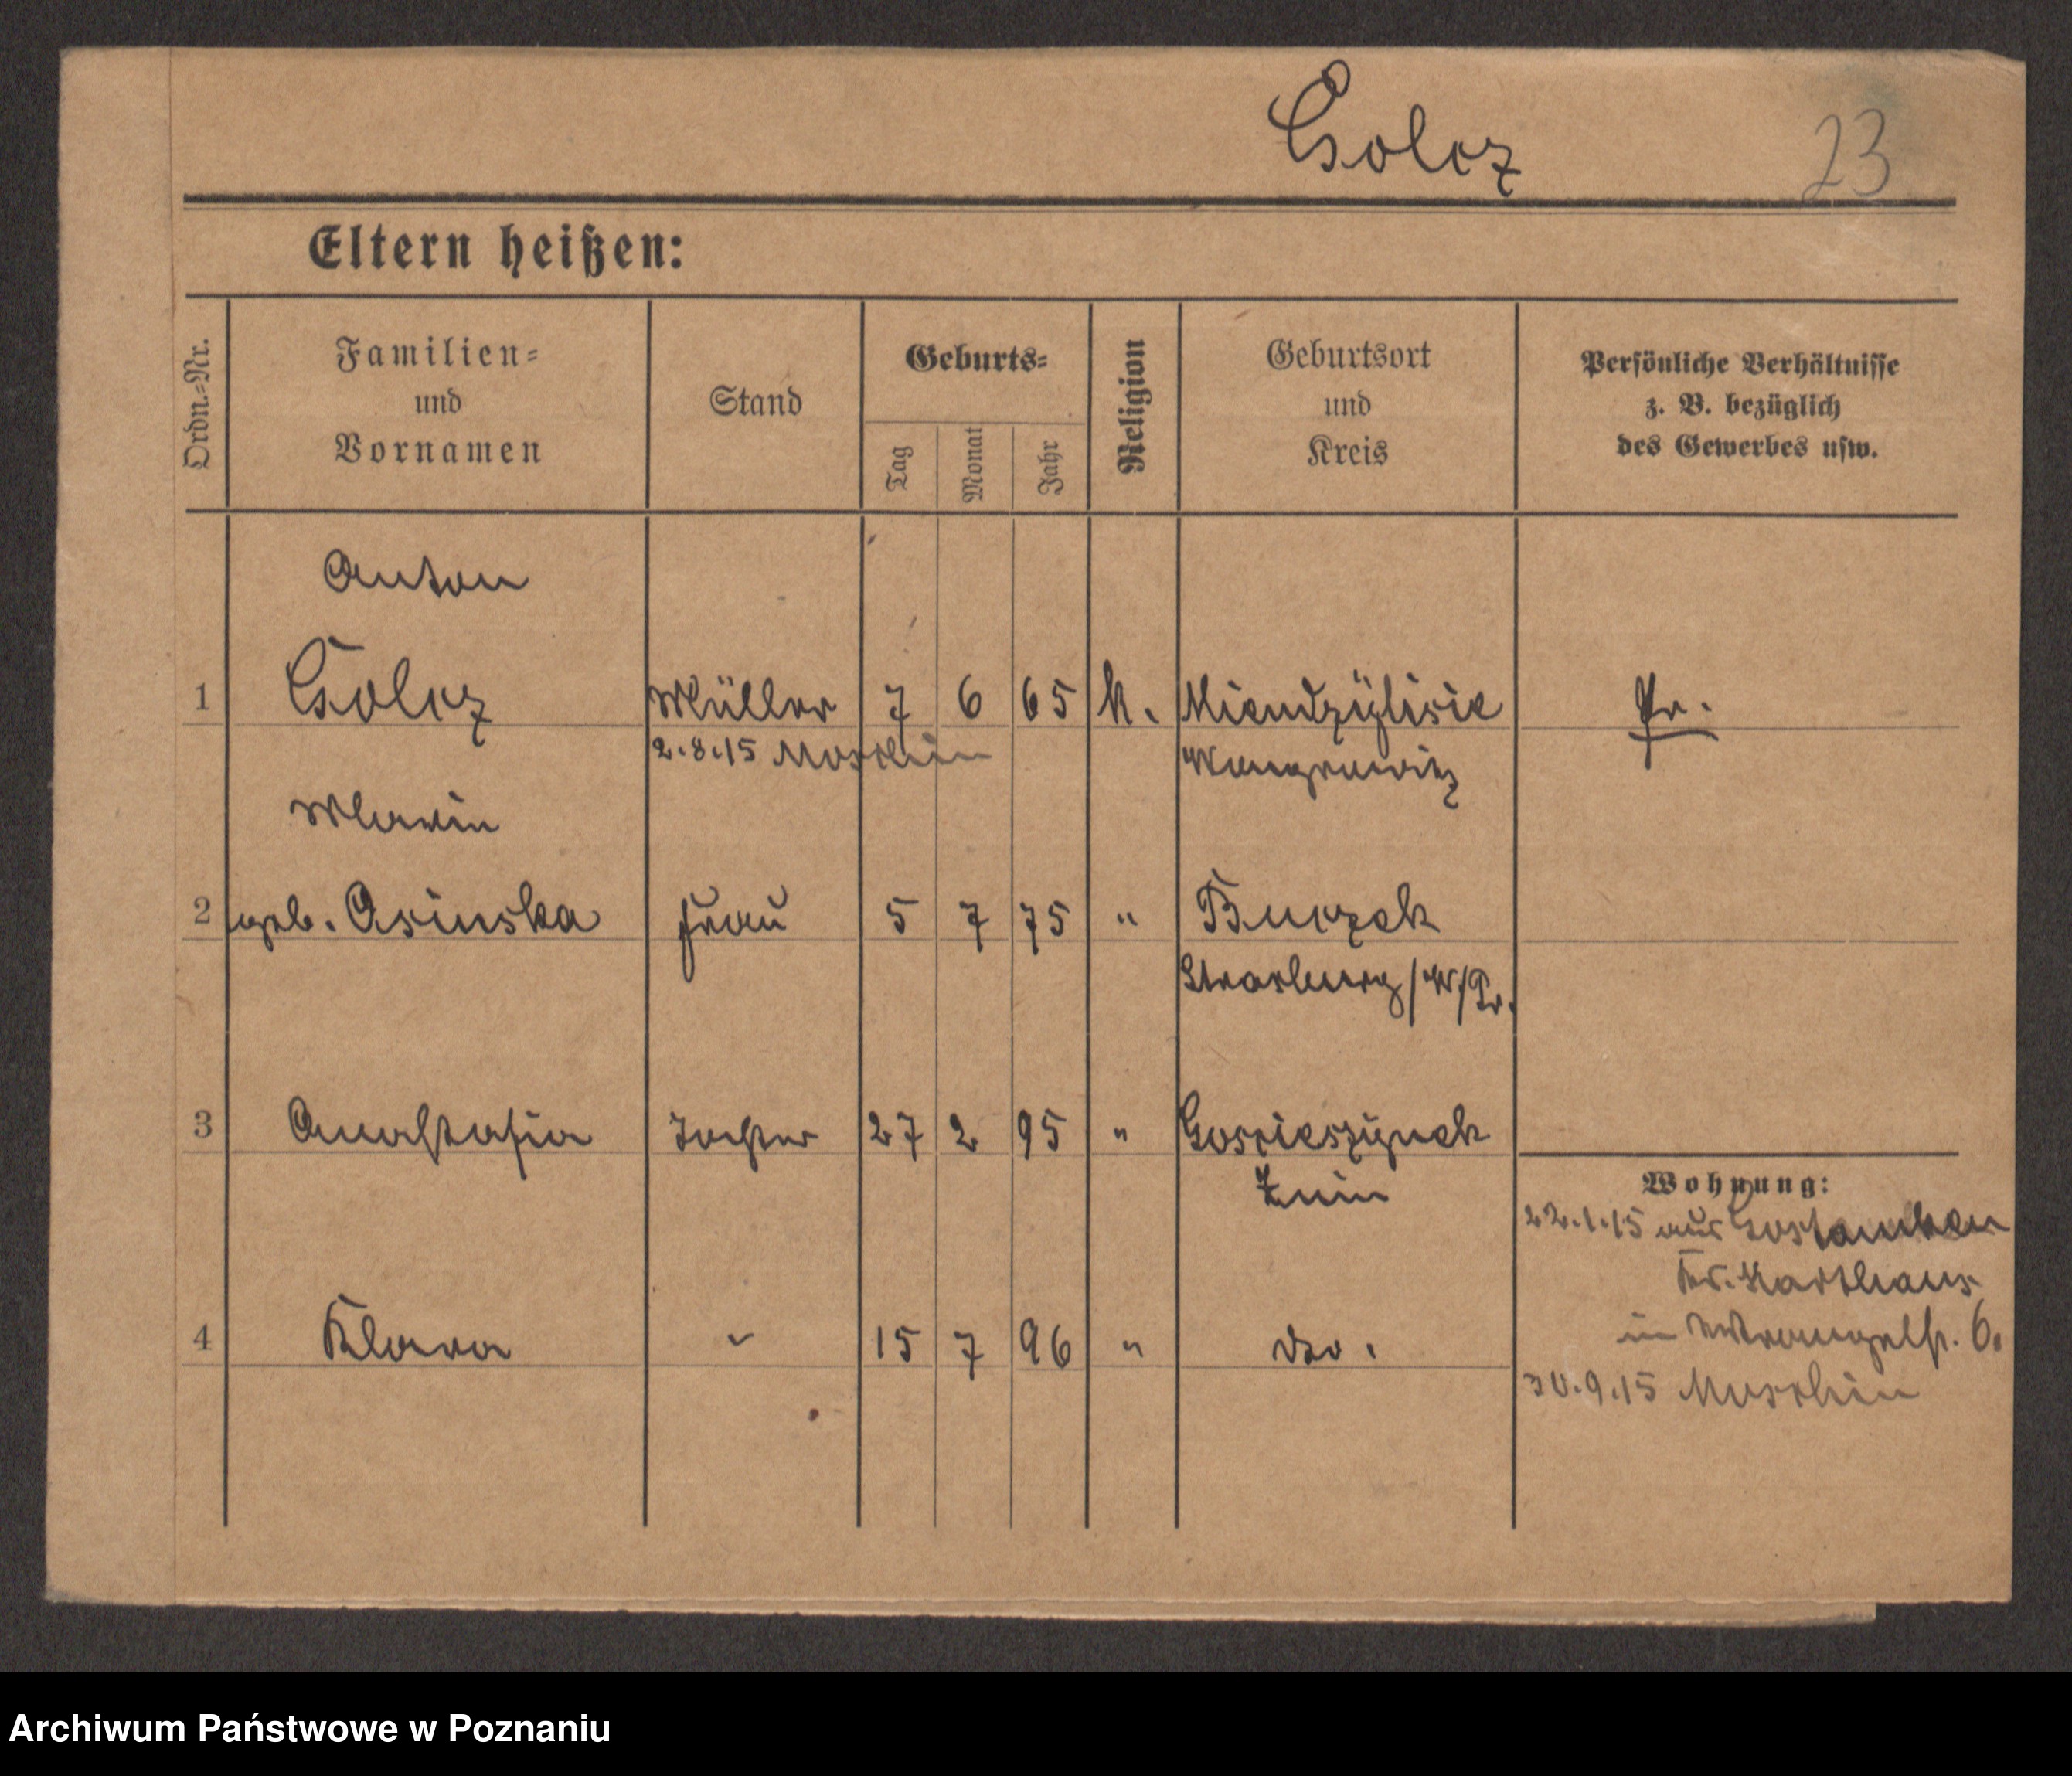 Golcz 23
Eltern heißen:
Ordn.-Nr.
Familien-
und
Vornamen
Stand
Geburts-
Tag
Monat
Jahr
Religion
Geburtsort
und
Kreis
Persönliche Verhältnisse
z. B. bezüglich
des Gewerbes usw.
Anton
1 Golcz Müller 7 6 65 k. Pr.
2.8.15 Moschin Wongrowitz
Maria
2 geb. Osinska Frau 5 7 75 " Buczek
Strasburg/W/Pr.
3 Anastasia Tochter 27 2 95 "
Znin
Wohnung:
22.1.15 aus Gostomken
Kr. Karthaus
4 Klara " 15 7 96 " dto.
in Wrangelstr. 6.
30.9.15 Moschin
Archiwum Państwowe w Poznaniu